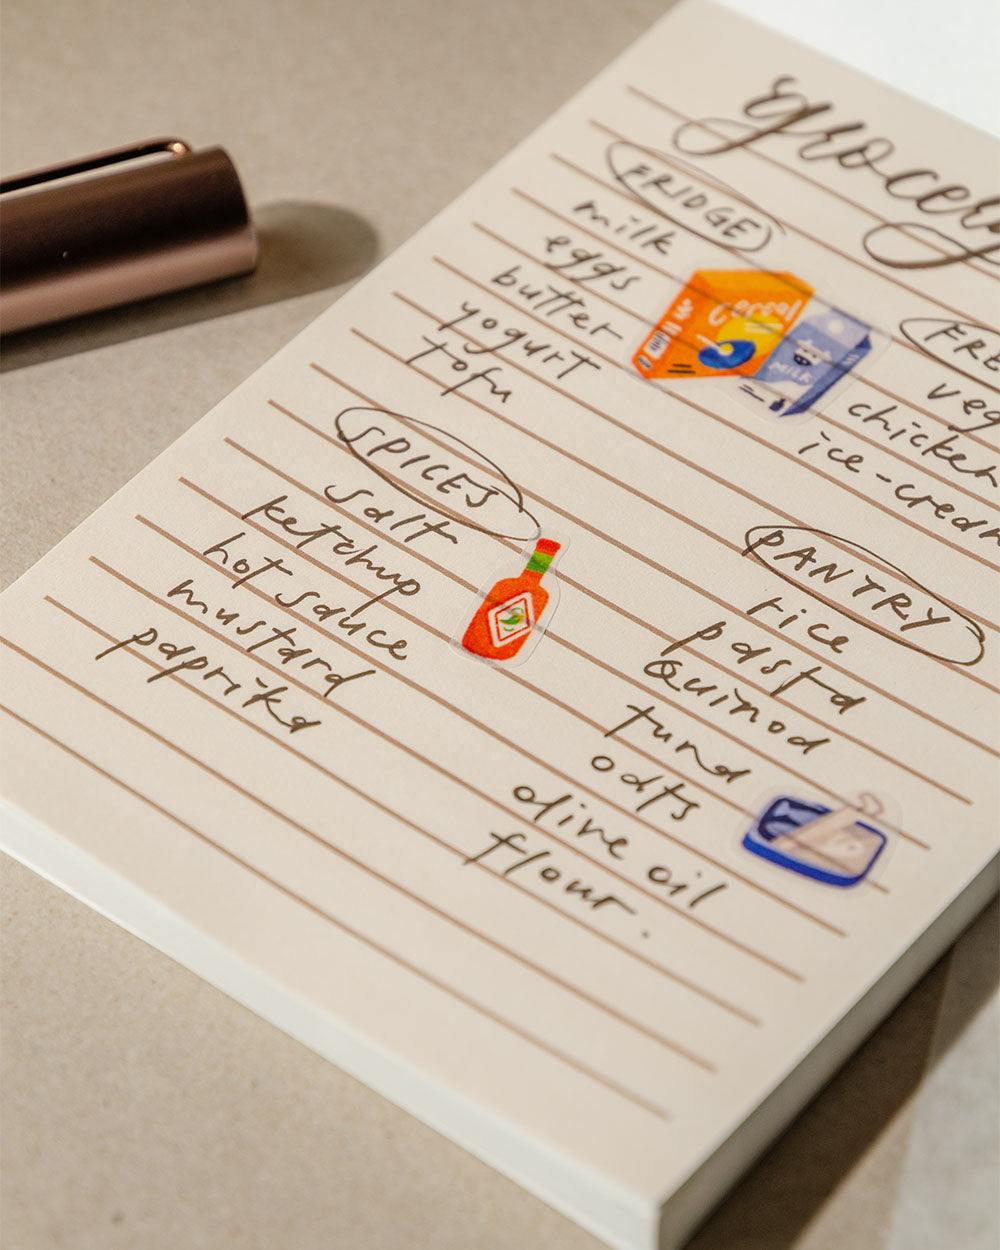 grocery
FRIDGE
milk
eggs
butter
yogurt
tofu
Cereal
MILK
SPICES
salt
ketchup
hot sauce
mustard
paprika
FRE
veg
chicken
ice-cream
PANTRY
rice
pasta
Quinoa
tuna
oats
olive oil
flour.